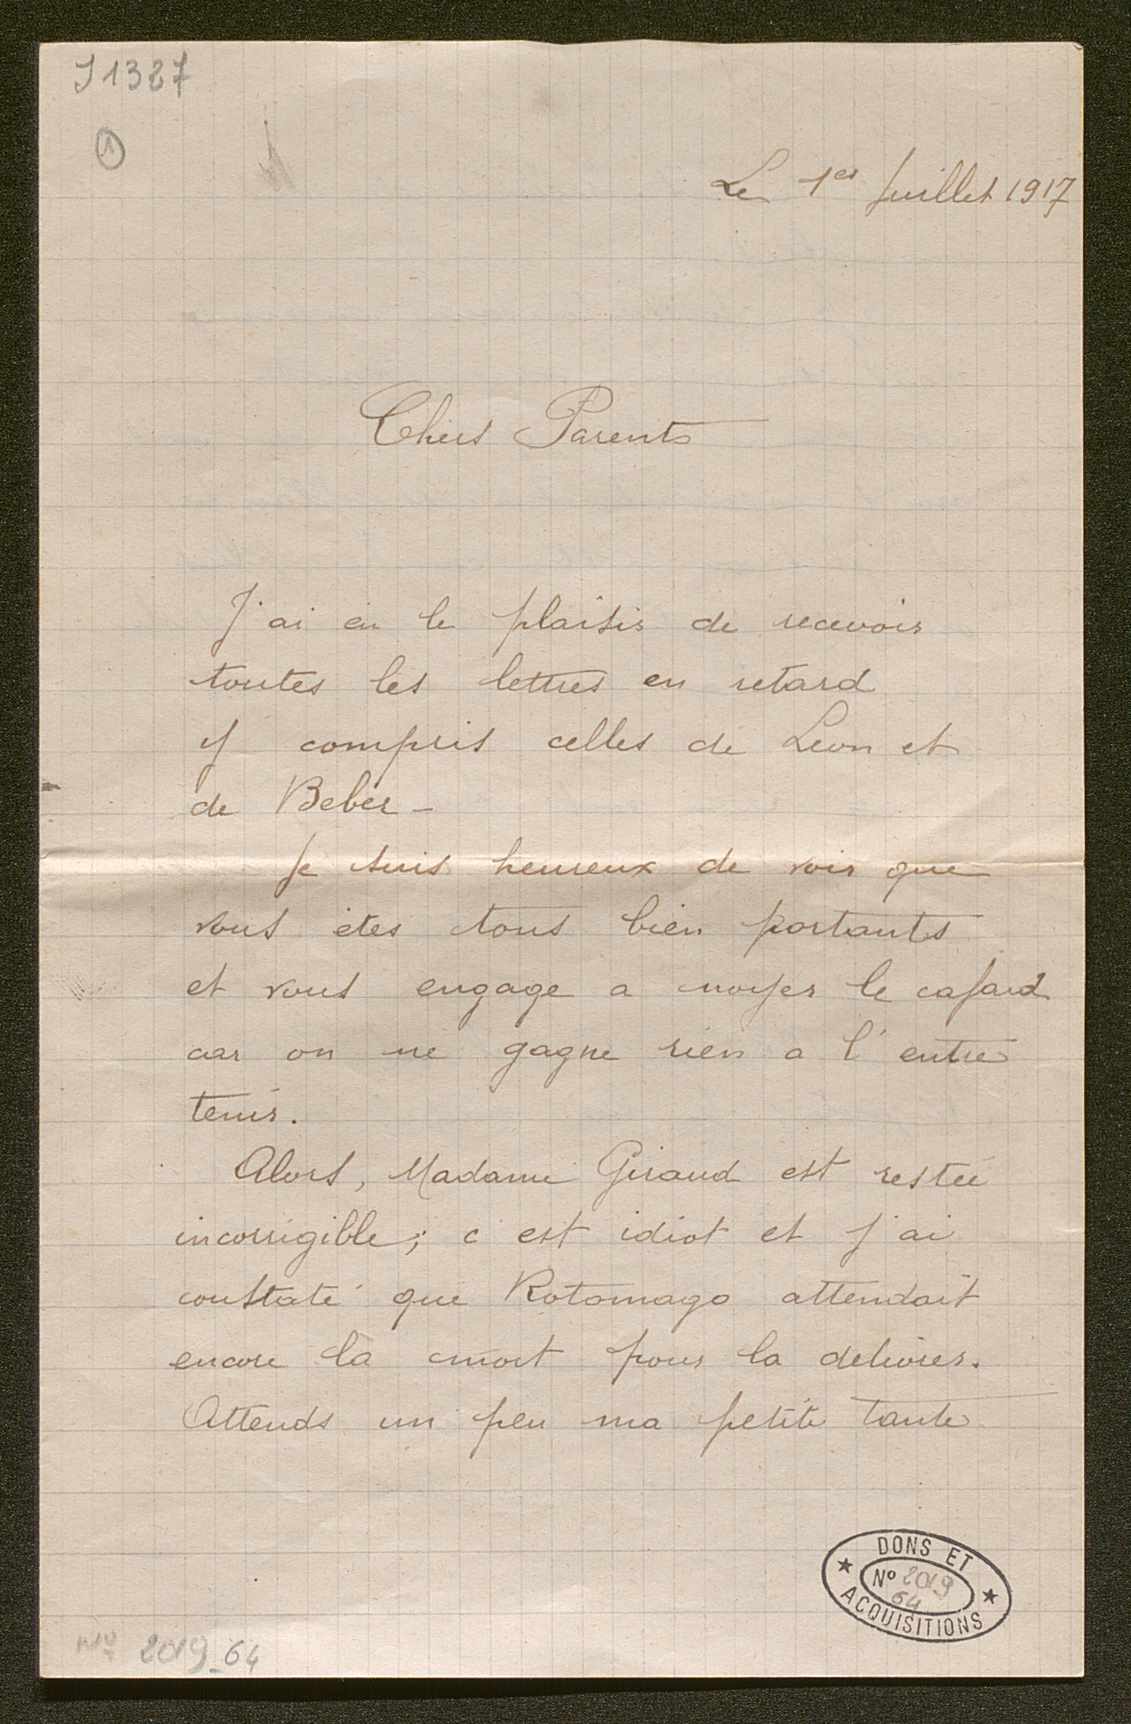 J1327
1
Le 1er Juillet 1917
Chers Parents
J'ai eu le plaisir de recevoir
toutes les lettres en retard
y compris celles de Leon et
de Beber -
Je suis heureux de voir que
vous êtes tous bien portants
et vous engage a noyer le cafard
car on ne gagne rien a l'entre
tenir.
Alors, Madame Giraud est restée
incorrigible; c'est idiot et j'ai
constaté que Rotomago attendait
encore la mort pour la delivrer.
Attends un peu ma petite tante
DONS ET
No 2019
64
ACQUISITIONS
No 2019_64